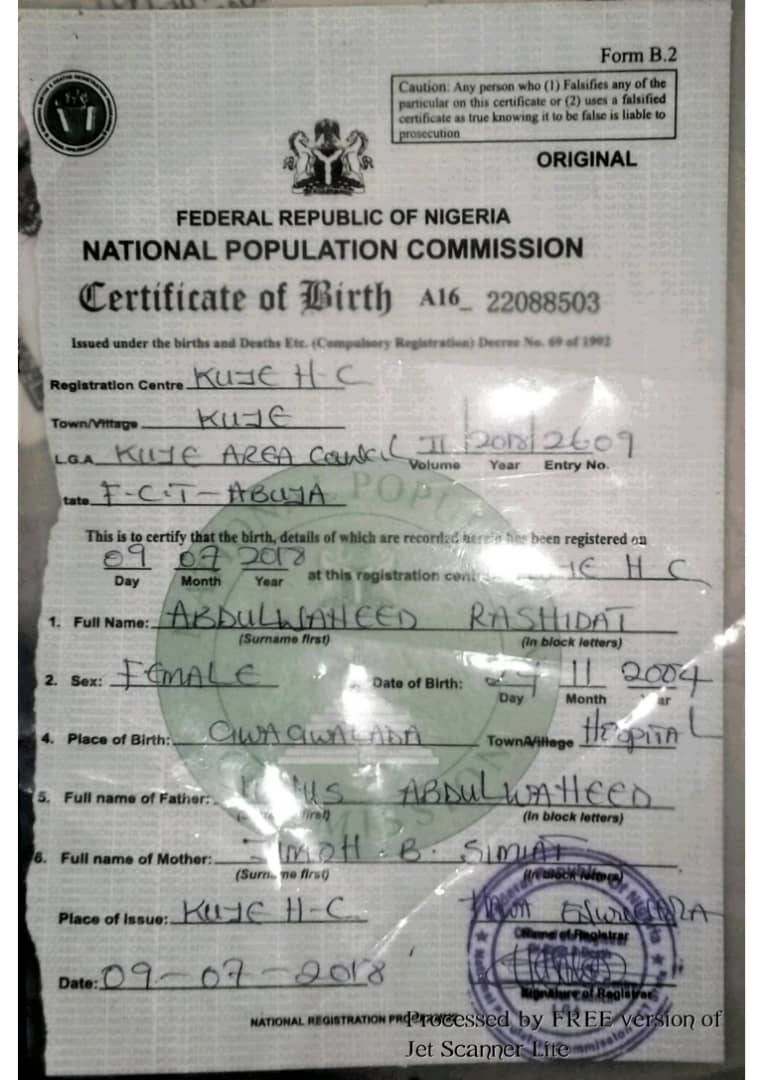 Form B.2
Caution: Any person who (1) Falsifies any of the
particular on this certificate or (2) uses a falsified
certificate as true knowing it to be false is liable to
prosecution
ORIGINAL
FEDERAL REPUBLIC OF NIGERIA
NATIONAL POPULATION COMMISSION
Certificate of Birth A16_ 22088503
Issued under the births and Deaths Etc. (Compulsory Registration) Decree No. 69 of 1992
Registration Centre KUJE H-C
Town/Village KUJE
L.G.A KUJE AREA Council II 2018 2609
Volume Year Entry No.
tate F-C-T-ABUJA
This is to certify that the birth, details of which are recorded herein has been registered on
09 07 2018
Day Month Year at this registration cent JE H-C
1. Full Name: ABDULWAHEED RASHIDAT
(Surname first) (In block letters)
2. Sex: FEMALE Date of Birth: 11 2004
Day Month ar
4. Place of Birth: GWAGWALADA Town/Village HOSPITAL
5. Full name of Father: ABDULWAHEED
(In block letters)
6. Full name of Mother: JIMOH B. SIMIAT
(Surname first) (In block letters)
Place of Issue: KUJE H-C
Name of Registrar
Date: 09-07-2018
Signature of Registrar
NATIONAL REGISTRATION
Processed by FREE version of
Jet Scanner Lite